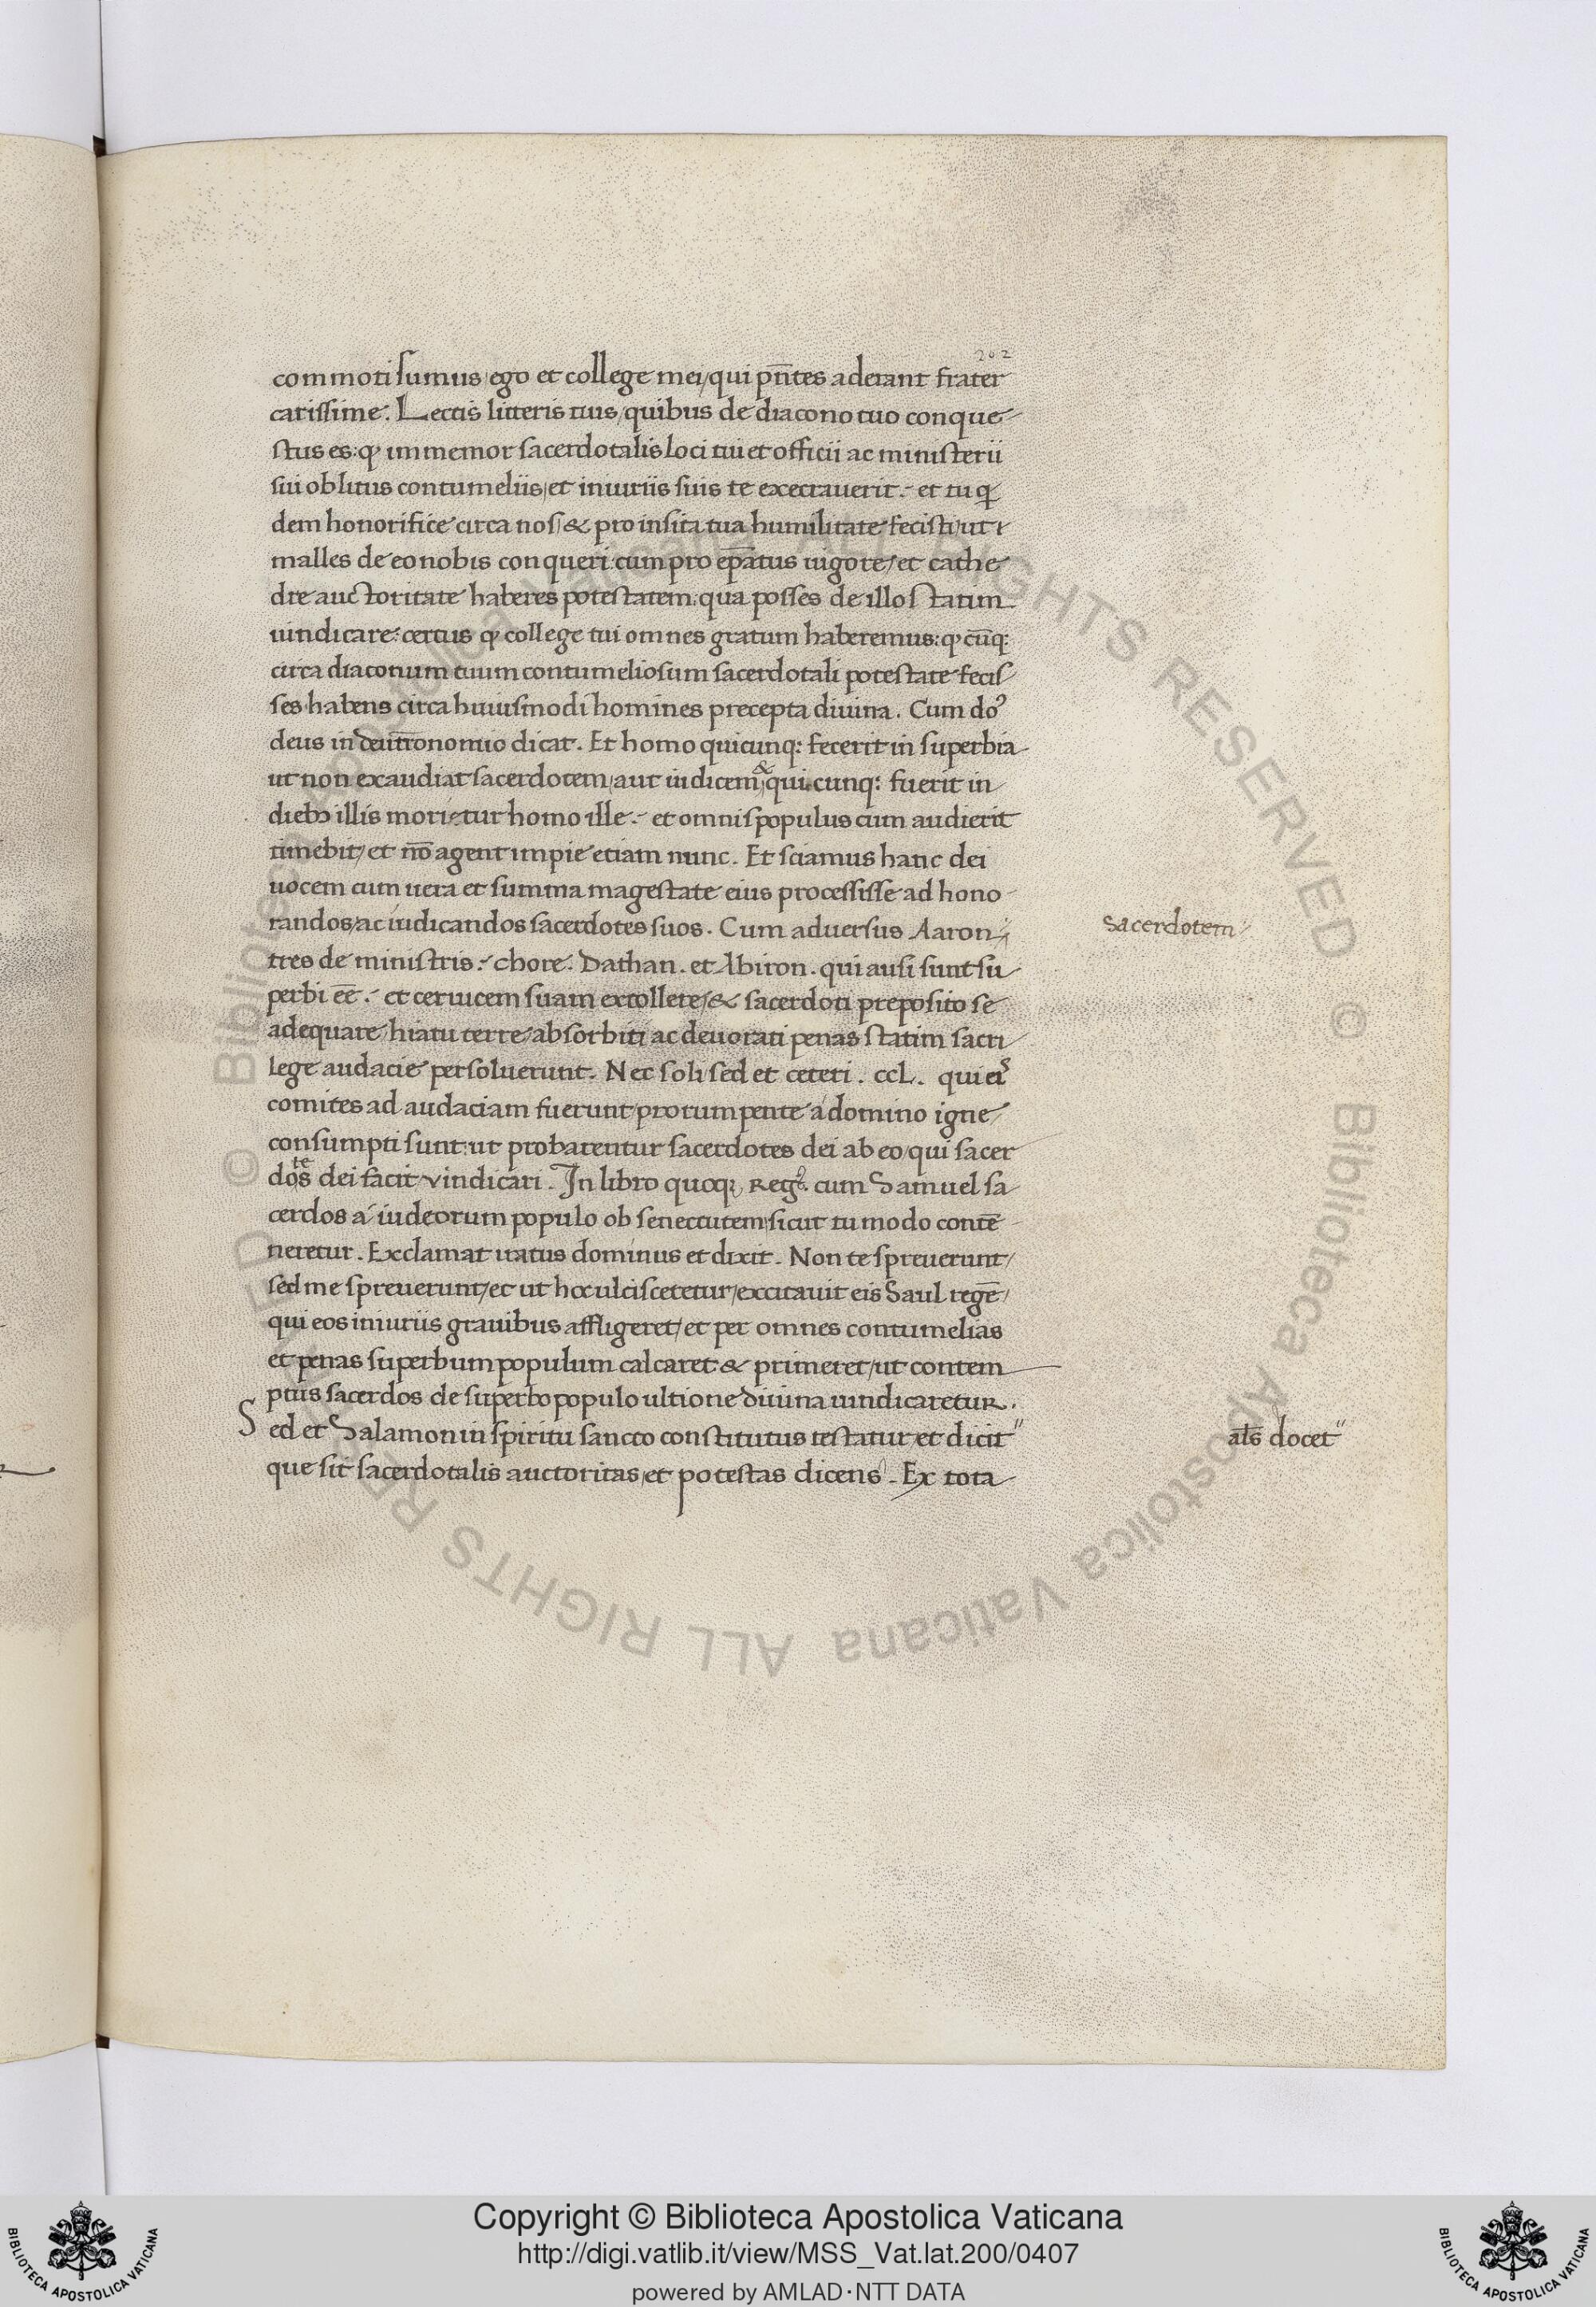 202
commoti sumus ego et college mei/ qui pñtes aderant frater
carissime. Lectis litteris tuis/ quibus de diacono tuo conque
stus es: ꝙ immemor sacerdotalis loci tui et officii ac ministerii
sui oblitus contumeliis/ et iniuriis suis te exectauerit. et tu qi
dem honorifice circa nos/ & pro insita tua humilitate fecisti/ ut
malles de eo nobis conqueri: cum pro ep̄atus uigore/ et cathe
dre auctoritate haberes potestatem: qua posses de illo statim
uindicare: certus ꝙ college tui omnes gratum haberemus: ꝙ cūq:
circa diaconum tuum contumeliosum sacerdotali potestate fecis
ses habens circa huiusmodi homines precepta diuina. Cum do᷒
deus in deutr̄onomio dicat. Et homo quicunq: fecerit in superbia
ut non exaudiat sacerdotem/ aut iudicem & qui cunq: fuerit in
dieb᷒ illis morietur homo ille. et omnis populus cum audierit
timebit/ et nō agent impie etiam nunc. Et sciamus hanc dei
uocem cum uera et summa magestate eius processisse ad hono
randos/ ac iudicandos sacerdotes suos. Cum aduersus Aaron"
sacerdotem
tres de ministris. chore. Dathan. et Abiron. qui ausi sunt su
perbi eē. et ceruicem suam extollere/ & sacerdoti preposito se
adequare/ hiatu terre absorbiti ac deuorati penas statim sacri
lege audacie persoluerunt. Nec soli sed et ceteri. CCL. qui ei᷒
comites ad audaciam fuerunt/ prorumpente a domino igne
consumpti sunt: ut probarentur sacerdotes dei ab eo/ qui sacer
dotes dei facit vindicari. In libro quoq; Reg᷒. cum Samuel sa
cerdos a iudeorum populo ob senectutem/ sicut tu modo contē
neretur. Exclamat iratus dominus et dixit. Non te spreuerunt/
sed me spreuerunt/ et ut hoc ulciscetetur/ excitauit eis Saul regē/
qui eos iniuriis grauibus affligeret/ et per omnes contumelias
et penas superbum populum calcaret & primeret/ ut contem
ptus sacerdos de superbo populo ultione diuina uindicaretur.
Sed et Salamon in spiritu sancto constitutus testatur/ et dicit"
al̄s docet"
que sit sacerdotalis auctoritas/ et potestas dicens. Ex tota
Copyright © Biblioteca Apostolica Vaticana
http://digi.vatlib.it/view/MSS_Vat.lat.200/0407
powered by AMLAD·NTT DATA
BIBLIOTECA APOSTOLICA VATICANA
BIBLIOTECA APOSTOLICA VATICANA
© Biblioteca Apostolica Vaticana ALL RIGHTS RESERVED
© Biblioteca Apostolica Vaticana ALL RIGHTS RESERVED